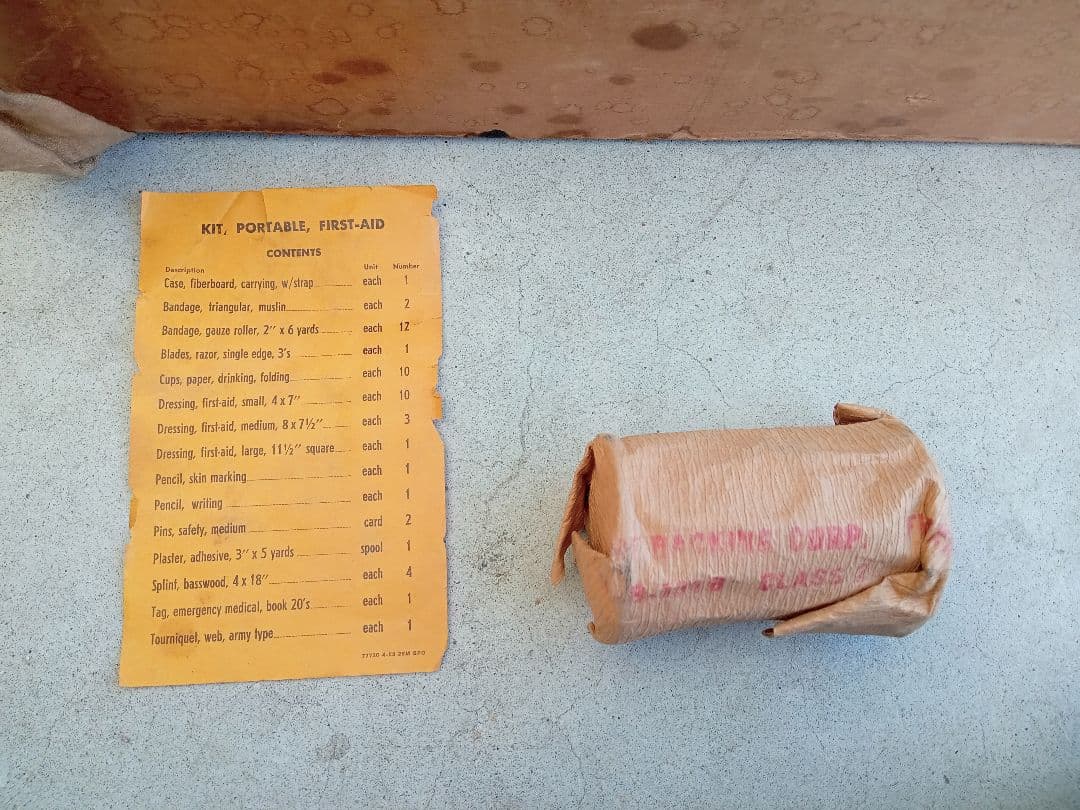 KIT, PORTABLE, FIRST-AID
CONTENTS
Description Unit Number
Case, fiberboard, carrying, w/strap each 1
Bandage, triangular, muslin each 2
Bandage, gauze roller, 2″ x 6 yards each 12
Blades, razor, single edge, 3's each 1
Cups, paper, drinking, folding each 10
Dressing, first-aid, small, 4 x 7″ each 10
Dressing, first-aid, medium, 8 x 7½″ each 3
Dressing, first-aid, large, 11½″ square each 1
Pencil, skin marking each 1
Pencil, writing each 1
Pins, safety, medium card 2
Plaster, adhesive, 3″ x 5 yards spool 1
Splint, basswood, 4 x 18″ each 4
Tag, emergency medical, book 20's each 1
Tourniquet, web, army type each 1
GPO
PACKING CORP.
CLASS